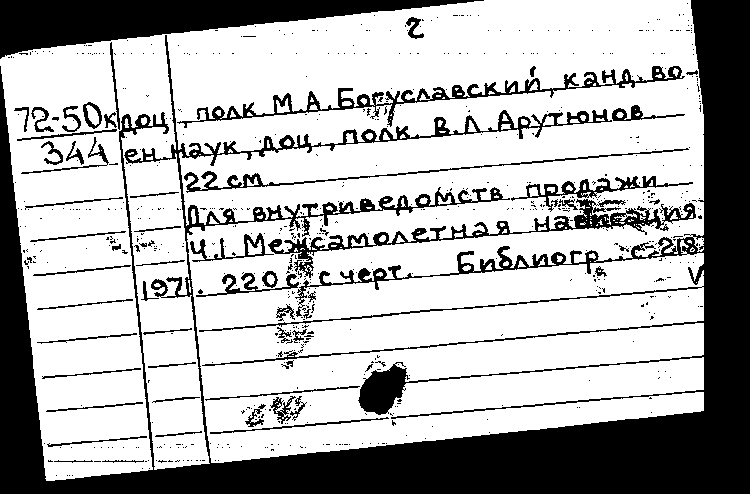 2
72-50к доц., полк. М.А. Богуславский, канд. во-
344 ен. наук, доц., полк. В.Л. Арутюнов.
22 см.
Для внутриведомств. продажи.
Ч.1. Межсамолетная навигация.
1971. 220 с. с черт. Библиогр.: с. 218
V